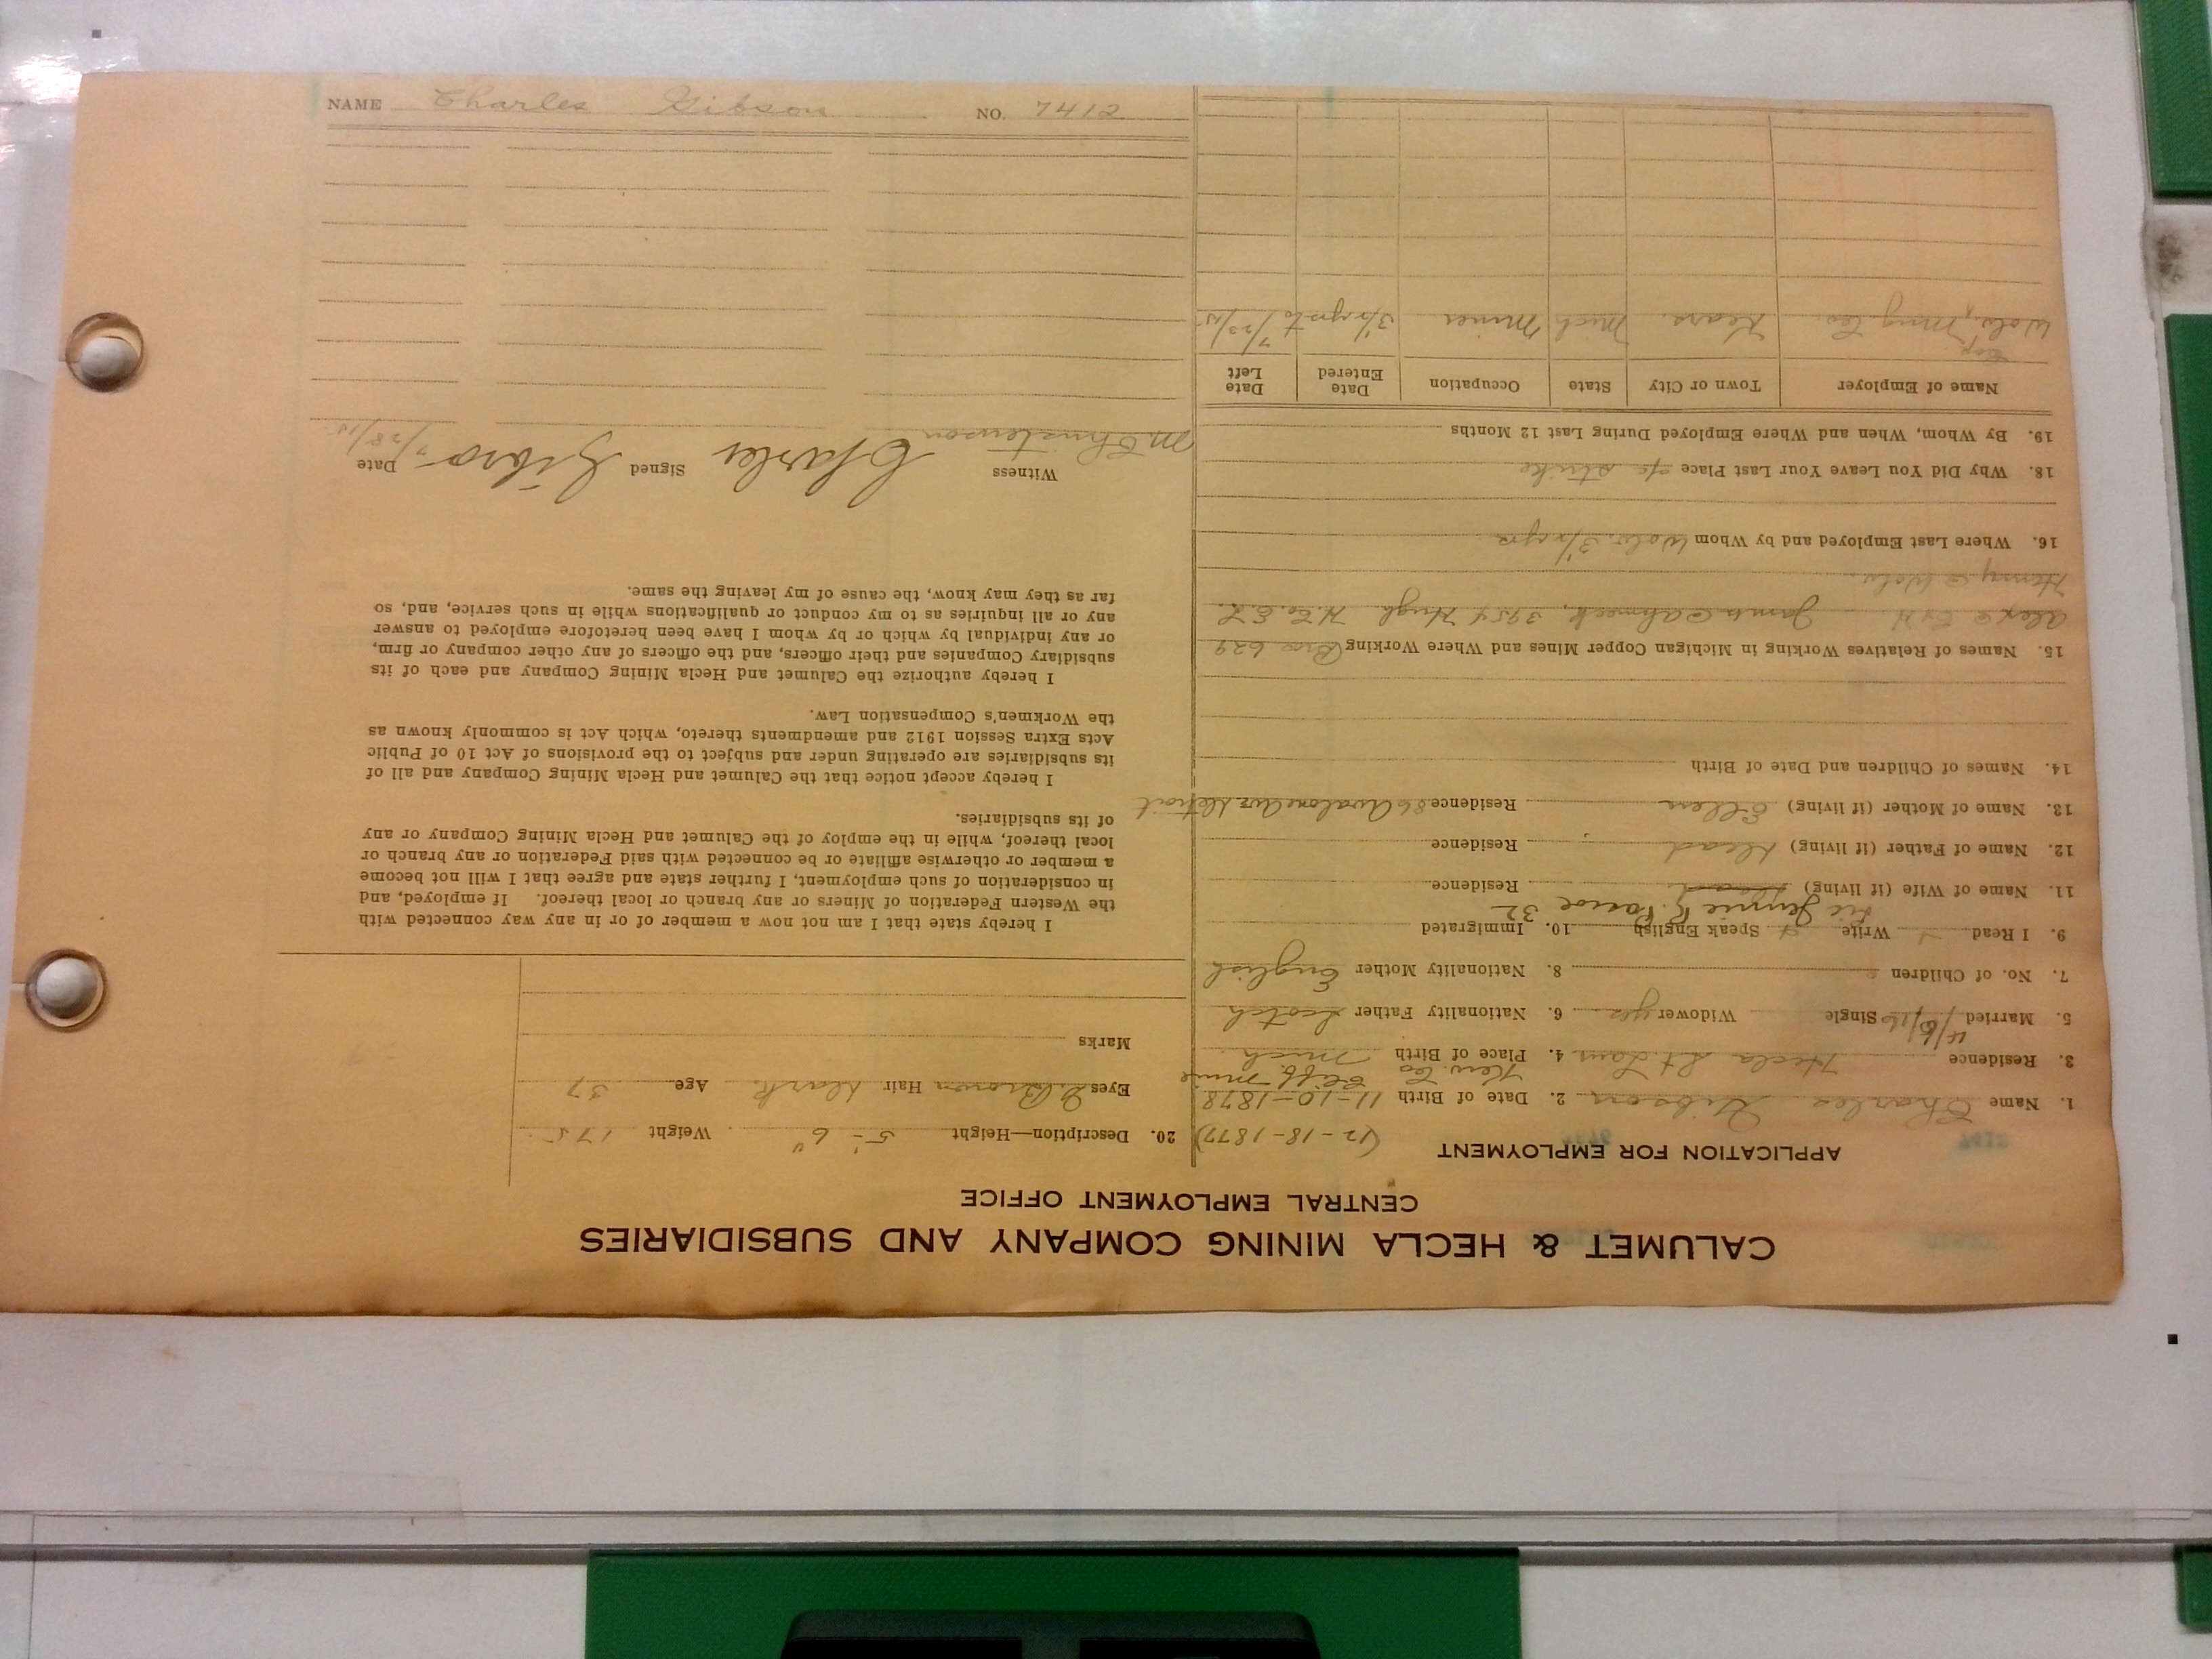 CALUMET & HECLA MINING COMPANY AND SUBSIDIARIES
CENTRAL EMPLOYMENT OFFICE
APPLICATION FOR EMPLOYMENT
(12-18-1877)
1. Name Charles Gibson 2. Date of Birth 11-10-1878
Cliff mine
3. Residence Hecla St Laur 4. Place of Birth Kew. Co Mich
5. Married 4/6/16 Single Widower yes 6. Nationality Father Scotch
7. No. of Children 8. Nationality Mother English
9. I Read Write Speak English 10. Immigrated
Jennie G. Pascoe 32
11. Name of Wife (if living) dead Residence
12. Name of Father (if living) dead Residence
13. Name of Mother (if living) Ellen Residence 86 Avalone Ave Detroit
14. Names of Children and Date of Birth
15. Names of Relatives Working in Michigan Copper Mines and Where Working Bros 629
Alex @ C&H James @ Ahmeek, 3954 Hugh
Henry @ Wolv.
16. Where Last Employed and by Whom Wolv. 3 1/2 yrs
18. Why Did You Leave Your Last Place a/c strike
19. By Whom, When and Where Employed During Last 12 Months
Name of Employer Town or City State Occupation Date Entered Date Left
Wolv. Cop. Mng. Co. Kears. Mich Miner 3 1/2 yrs to 7/23/15
20. Description—Height 5'-6" Weight 175
Eyes D. Brown Hair dark Age 37
Marks
I hereby state that I am not now a member of or in any way connected with
the Western Federation of Miners or any branch or local thereof. If employed, and
in consideration of such employment, I further state and agree that I will not become
a member or otherwise affiliate or be connected with said Federation or any branch or
local thereof, while in the employ of the Calumet and Hecla Mining Company or any
of its subsidiaries.
I hereby accept notice that the Calumet and Hecla Mining Company and all of
its subsidiaries are operating under and subject to the provisions of Act 10 of Public
Acts Extra Session 1912 and amendments thereto, which Act is commonly known as
the Workmen's Compensation Law.
I hereby authorize the Calumet and Hecla Mining Company and each of its
subsidiary Companies and their officers, and the officers of any other company or firm,
or any individual by which or by whom I have been heretofore employed to answer
any or all inquiries as to my conduct or qualifications while in such service, and, so
far as they may know, the cause of my leaving the same.
Witness M Christenson Signed Charles Gibson Date 7/28/15
NAME Charles Gibson NO. 7412